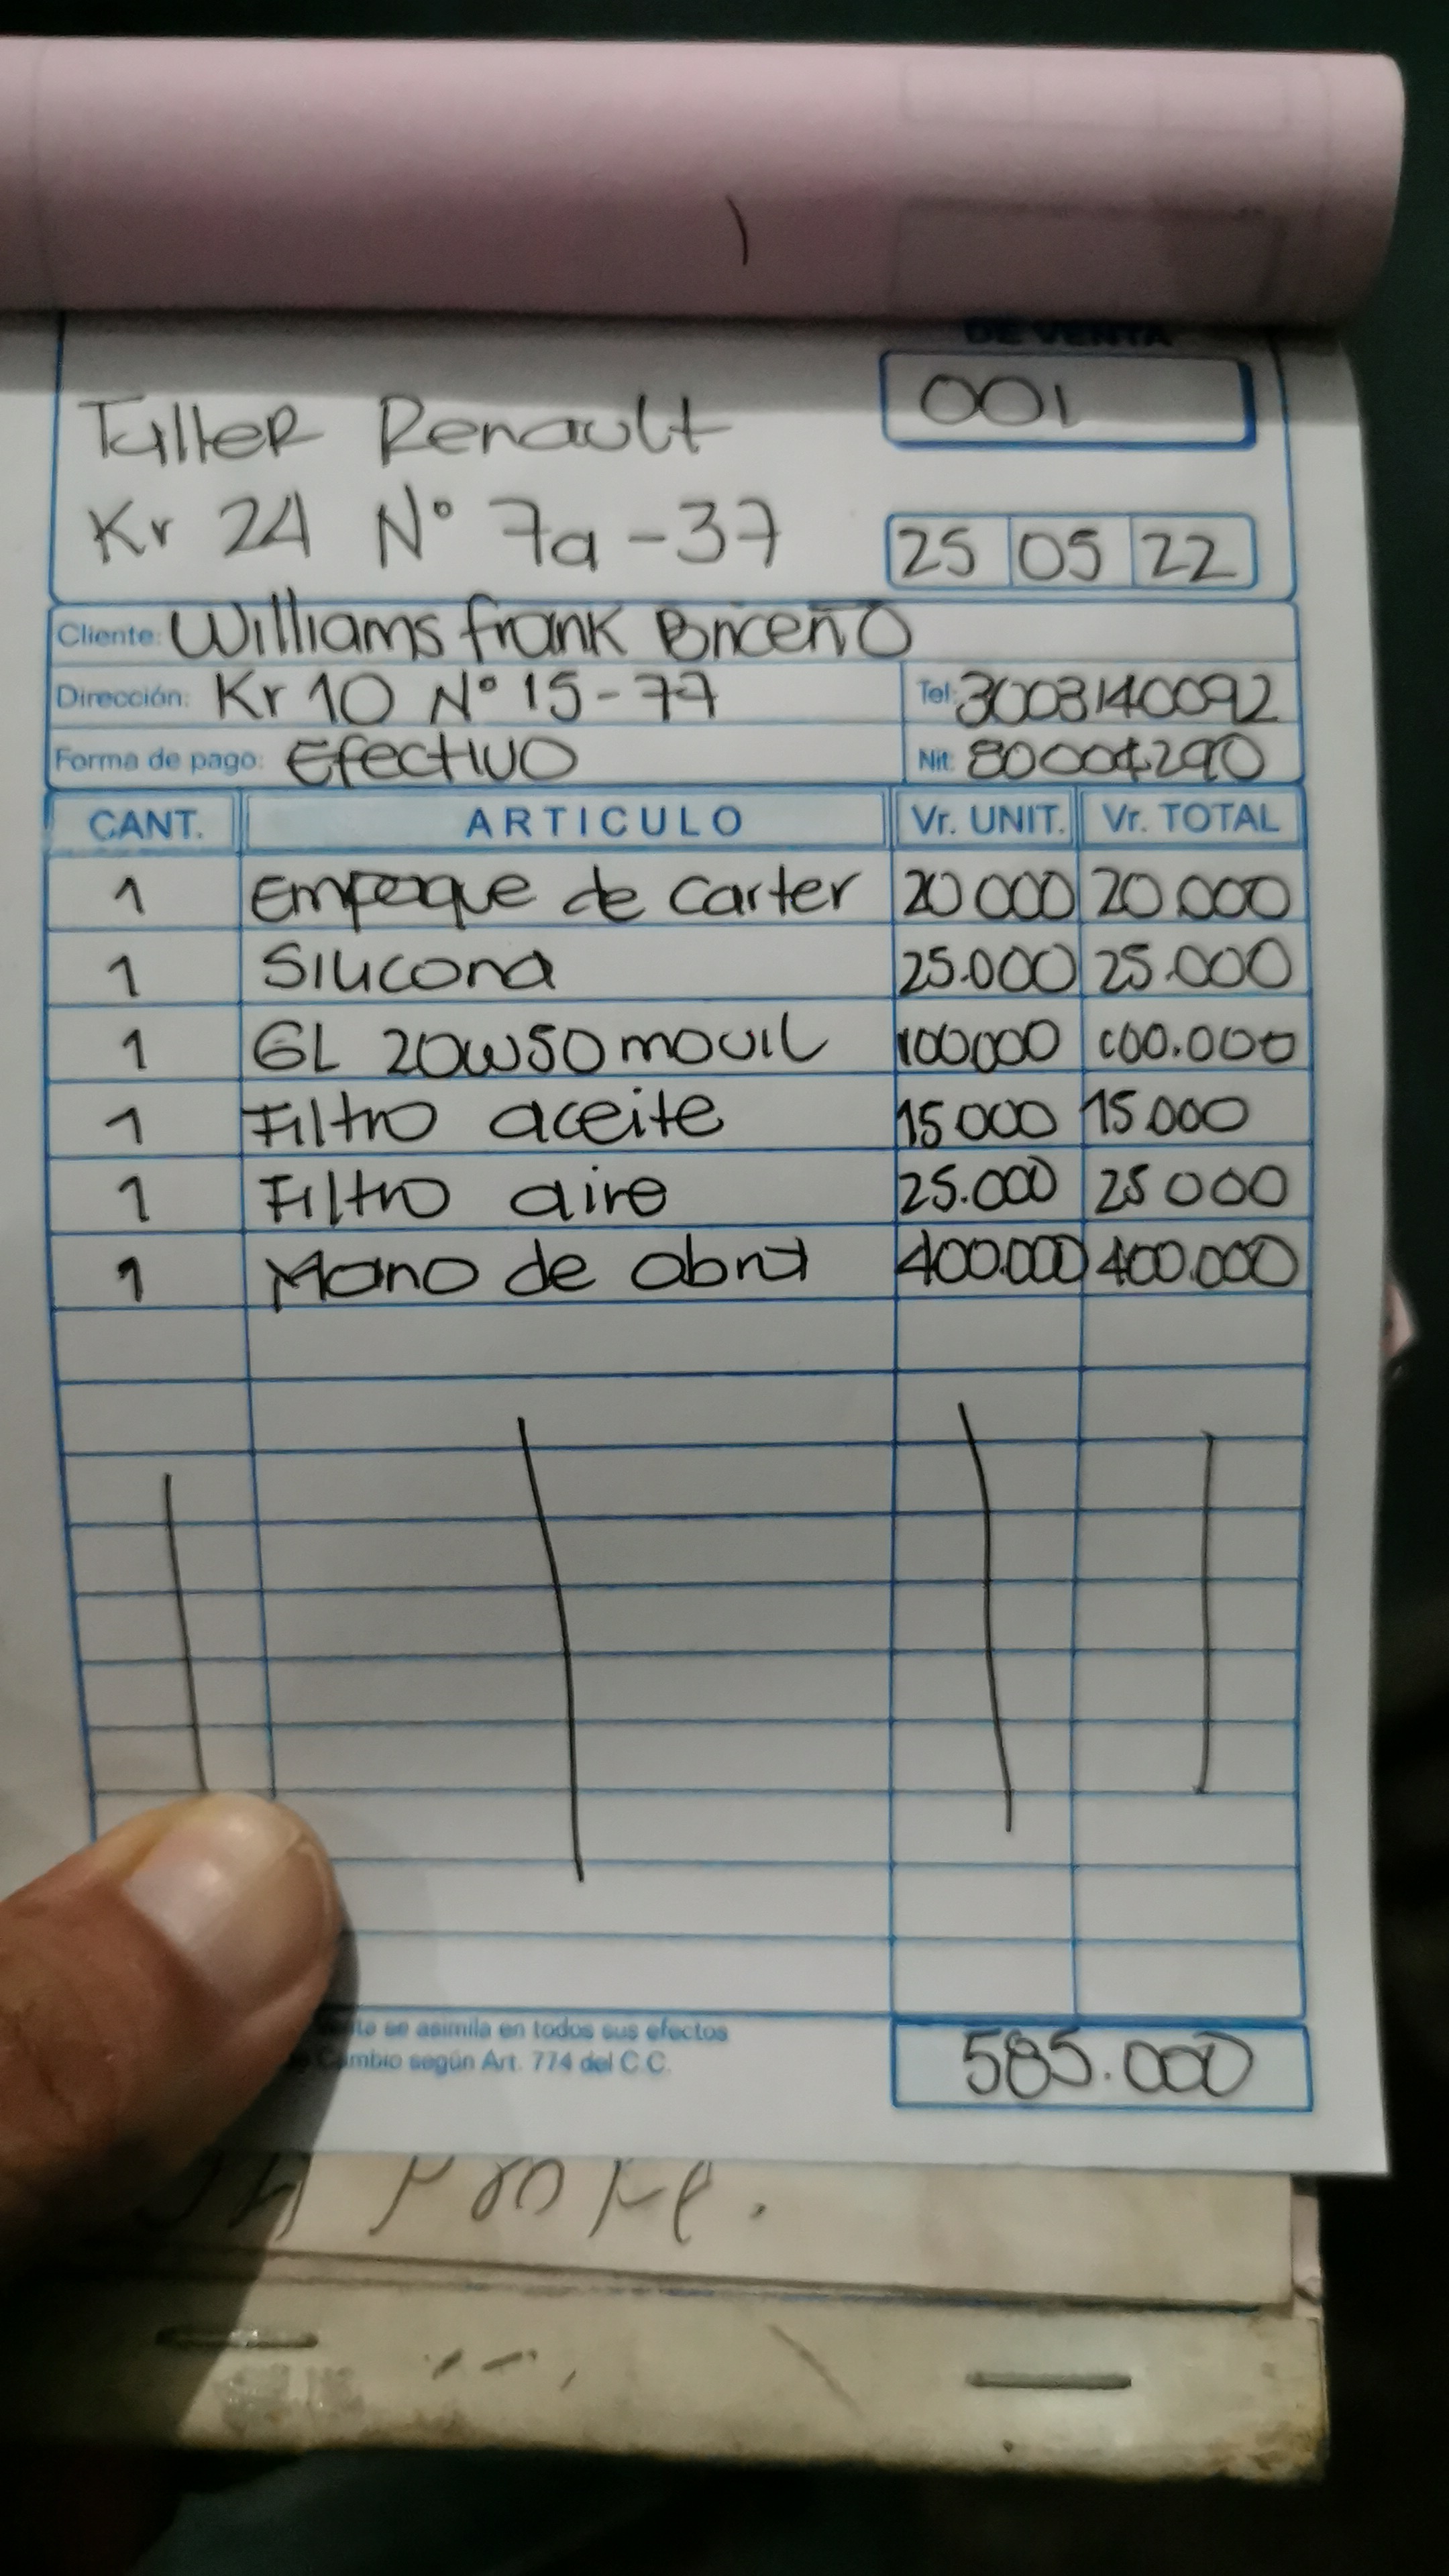 DE VENTA
001
Taller Renault
Kr 24 N° 7a-37
25 05 22
Cliente: Williams frank Briceño
Dirección: Kr 10 N° 15-77 Tel: 3003140092
Forma de pago: Efectivo Nit: 80004290
CANT. ARTICULO Vr. UNIT. Vr. TOTAL
1 Empaque de carter 20 000 20 000
1 Silicona 25.000 25.000
1 GL 20W50 movil 100000 100.000
1 Filtro aceite 15 000 15 000
1 Filtro aire 25.000 25 000
1 Mano de obra 400.000 400.000
se asimila en todos sus efectos
Cambio según Art. 774 del C.C.
585.000